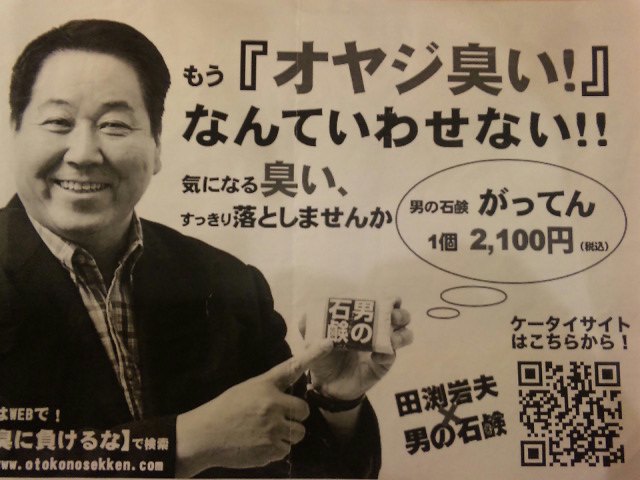 もう『オヤジ臭い!』
なんていわせない!!
気になる臭い、
すっきり落としませんか
男の石鹸 がってん
1個 2,100円(税込)
男の
石鹸
ケータイサイト
はこちらから!
田渕岩夫
×
男の石鹸
はWEBで!
臭に負けるな】で検索
www.otokonosekken.com